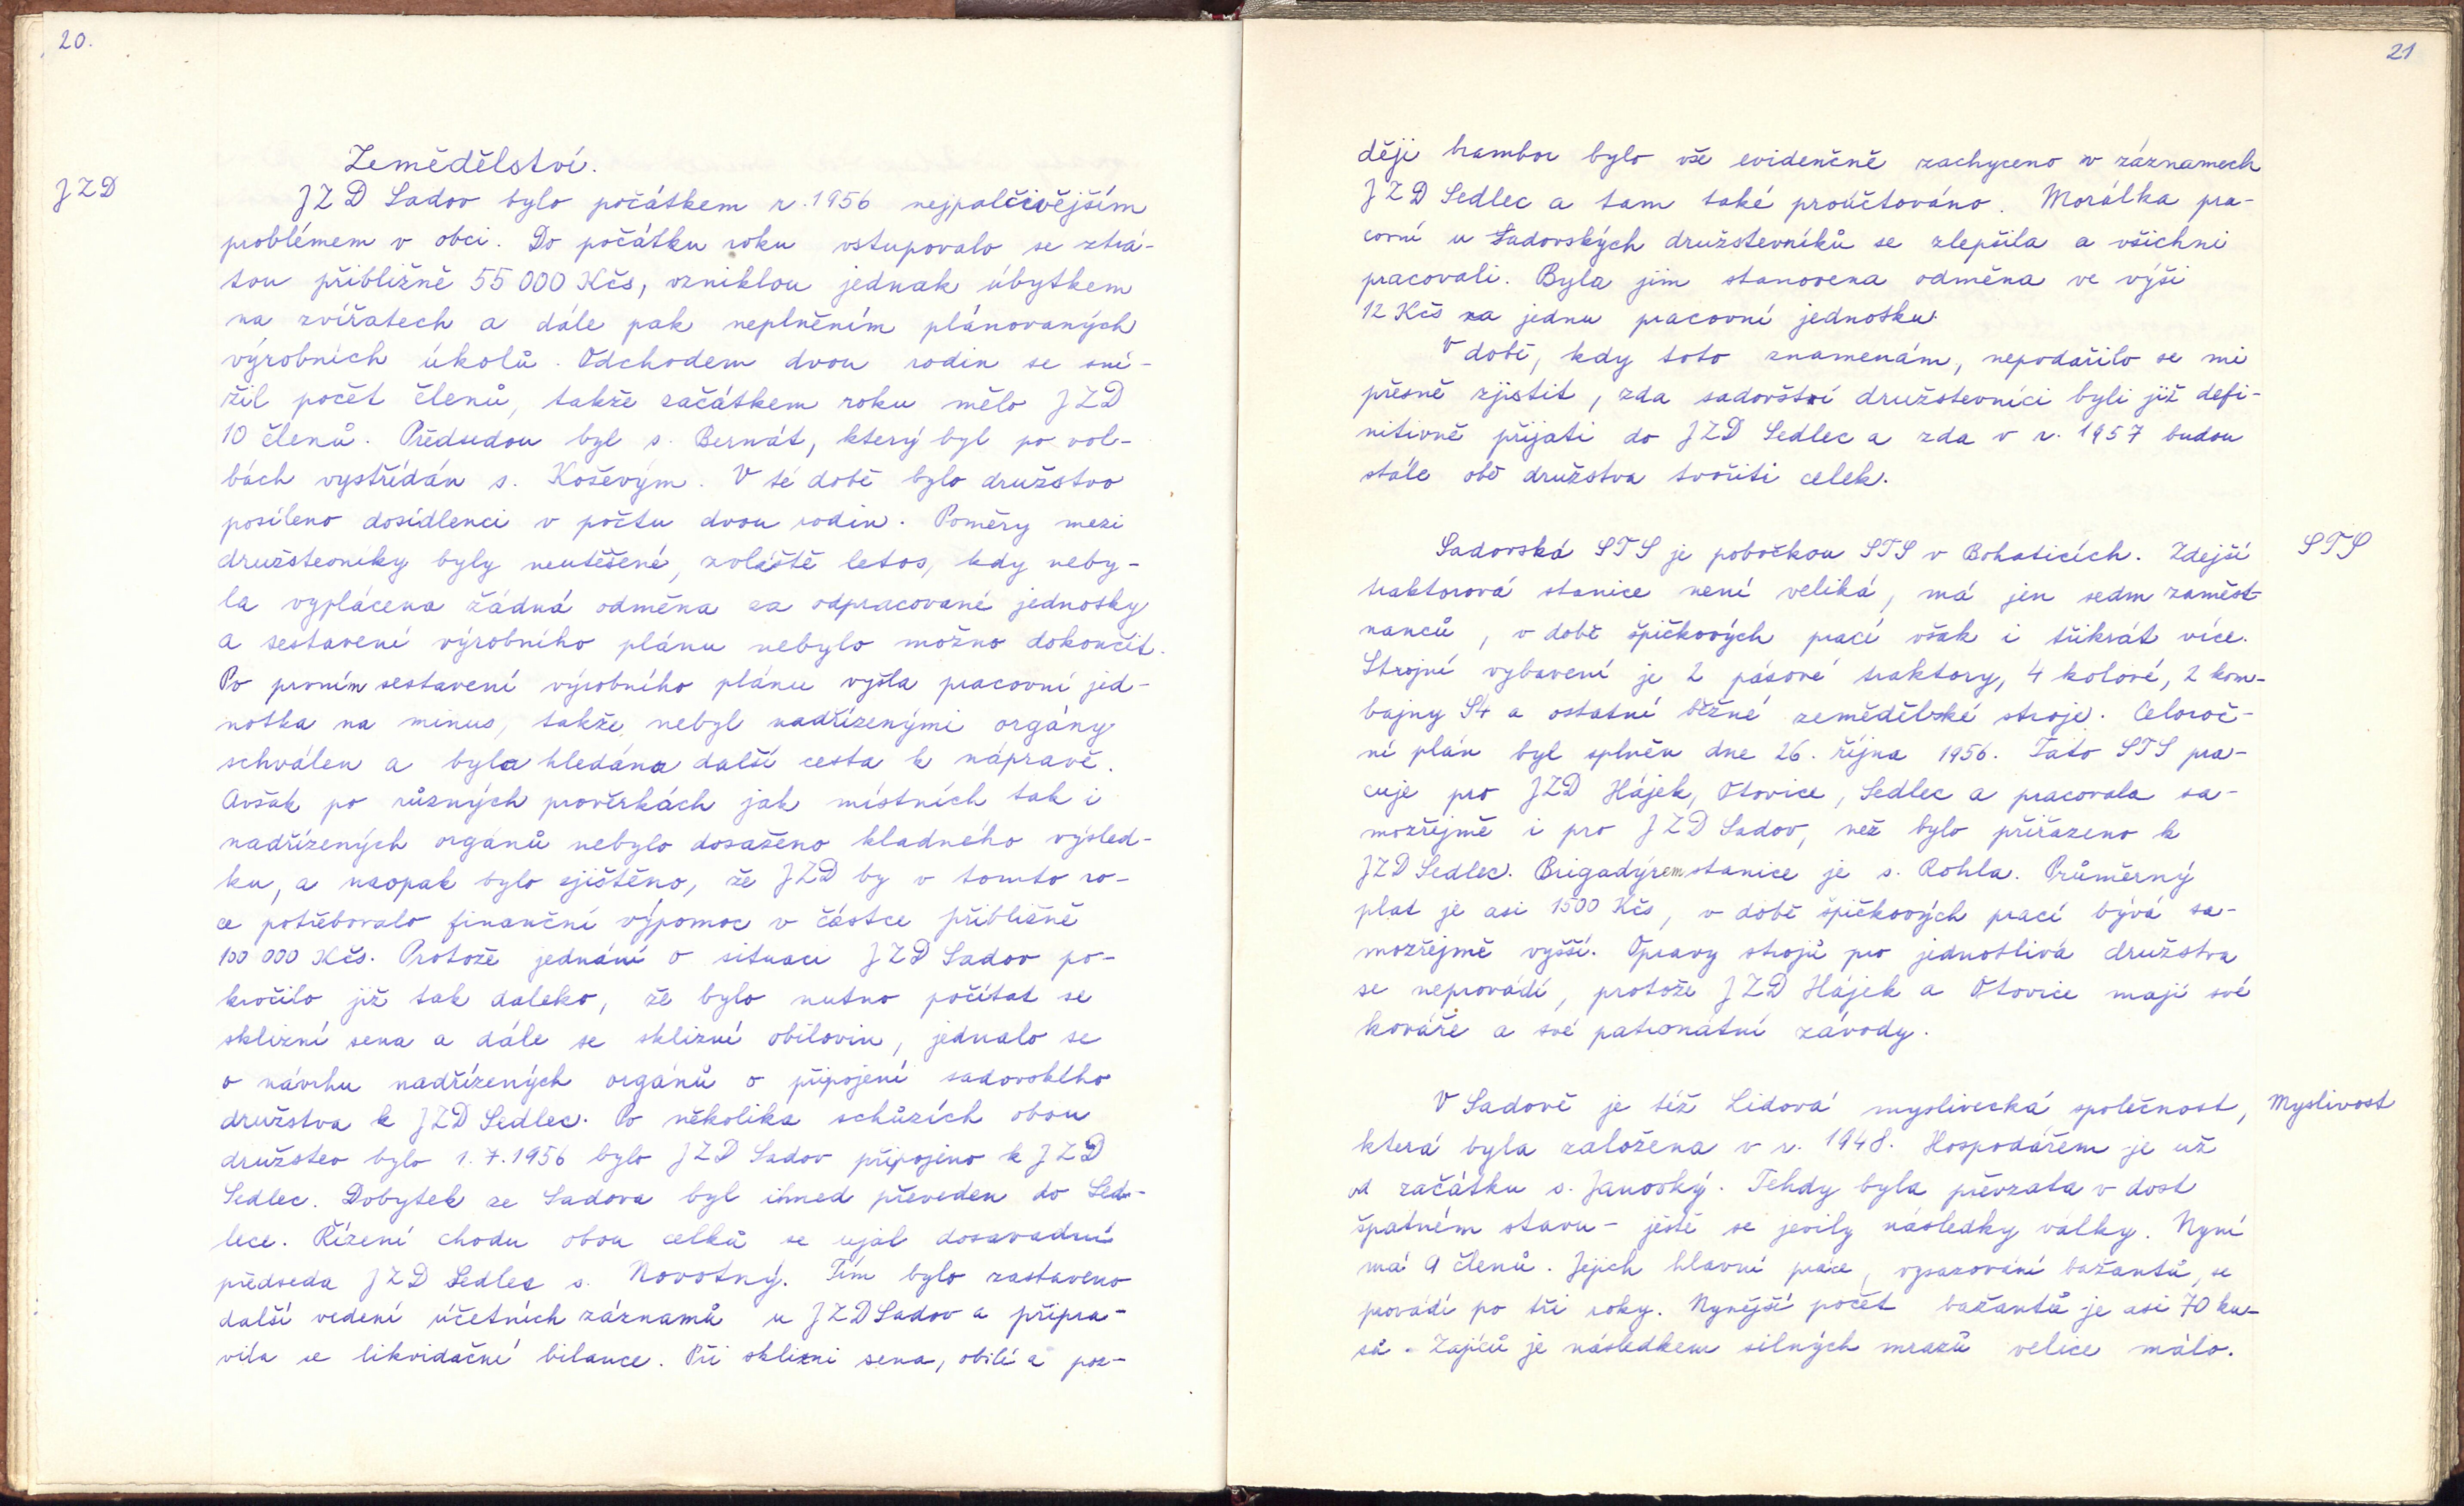 20.
Zemědělství.
JZD
JZD Sadov bylo počátkem r. 1956 nejpalčivějším
problémem v obci. Do počátku roku vstupovalo se ztrá-
tou přibližně 55 000 Kčs, vzniklou jednak úbytkem
na zvířatech a dále pak neplněním plánovaných
výrobních úkolů. Odchodem dvou rodin se sní-
žil počet členů, takže začátkem roku mělo JZD
10 členů. Předsedou byl s. Bernát, který byl po vol-
bách vystřídán s. Koševým. V té době bylo družstvo
posíleno dosídlenci v počtu dvou rodin. Poměry mezi
družstevníky byly neutěšené, zvláště letos, kdy neby-
la vyplácena žádná odměna za odpracované jednotky
a sestavení výrobního plánu nebylo možno dokončit.
Po prvním sestavení výrobního plánu vyšla pracovní jed-
notka na minus, takže nebyl nadřízenými orgány
schválen a byla hledána další cesta k nápravě.
Avšak po různých prověrkách jak místních tak i
nadřízených orgánů nebylo dosaženo kladného výsled-
ku, a naopak bylo zjištěno, že JZD by v tomto ro-
ce potřebovalo finanční výpomoc v částce přibližně
100 000 Kčs. Protože jednání o situaci JZD Sadov po-
kročilo již tak daleko, že bylo nutno počítat se
sklizní sena a dále se sklizní obilovin, jednalo se
o návrhu nadřízených orgánů o připojení sadovského
družstva k JZD Sedlec. Po několika schůzích obou
družstev bylo 1.7.1956 bylo JZD Sadov připojeno k JZD
Sedlec. Dobytek ze Sadova byl ihned převeden do Sed-
lece. Řízení chodu obou celků se ujal dosavadní
předseda JZD Sedlec s. Novotný. Tím bylo zastaveno
další vedení účetních záznamů u JZD Sadov a připra-
vila se likvidační bilance. Při sklizni sena, obilí a poz-
21
ději brambor bylo vše evidenčně zachyceno v záznamech
JZD Sedlec a tam také proúčtováno. Morálka pra-
covní u sadovských družstevníků se zlepšila a všichni
pracovali. Byla jim stanovena odměna ve výši
12 Kčs za jednu pracovní jednotku.
V době, kdy toto znamenám, nepodařilo se mi
přesně zjistit, zda sadovští družstevníci byli již defi-
nitivně přijati do JZD Sedlec a zda v r. 1957 budou
stále obě družstva tvořiti celek.
Sadovská STS je pobočkou STS v Bohaticích. Zdejší
STS
traktorová stanice není veliká, má jen sedm zaměst-
nanců, v době špičkových prací však i třikrát více.
Strojní vybavení je 2 pásové traktory, 4 kolové, 2 kom-
bajny S4 a ostatní běžné zemědělské stroje. Celoroč-
ní plán byl splněn dne 26. října 1956. Tato STS pra-
cuje pro JZD Hájek, Otovice, Sedlec a pracovala sa-
mozřejmě i pro JZD Sadov, než bylo přiřazeno k
JZD Sedlec. Brigadýrem stanice je s. Rohla. Průměrný
plat je asi 1500 Kčs, v době špičkových prací bývá sa-
mozřejmě vyšší. Opravy strojů pro jednotlivá družstva
se neprovádí, protože JZD Hájek a Otovice mají své
kováře a své patronátní závody.
V Sadově je též Lidová myslivecká společnost,
Myslivost
která byla založena v r. 1948. Hospodářem je už
od začátku s. Janovský. Tehdy byla převzata v dost
špatném stavu - ještě se jevily následky války. Nyní
má 9 členů. Jejich hlavní práce, vysazování bažantů, se
provádí po tři roky. Nynější počet bažantů je asi 70 ku-
sů. Zajíců je následkem silných mrazů velice málo.